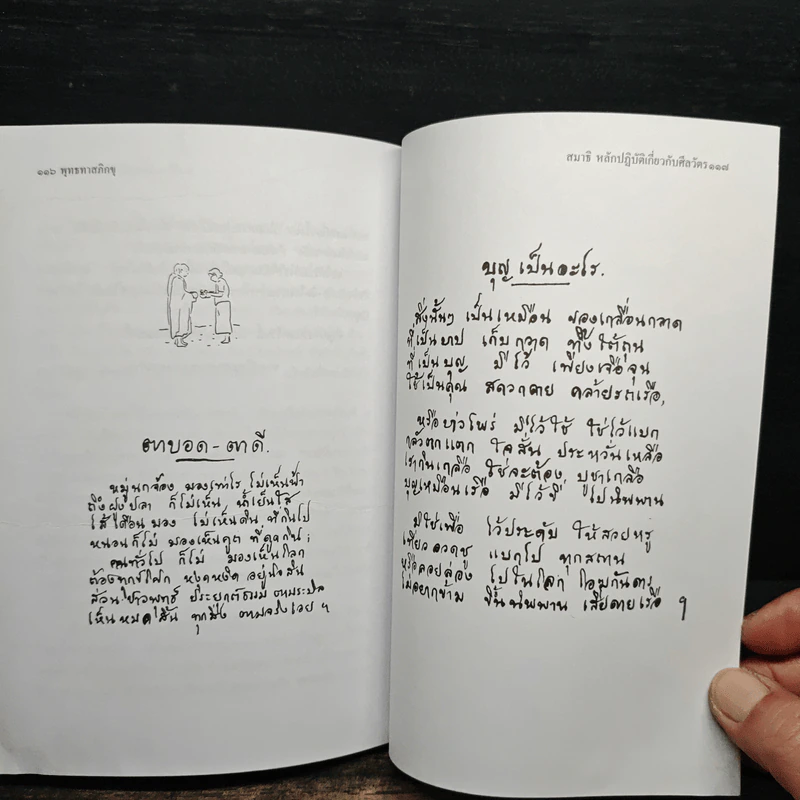 ๑๑๖ พุทธทาสภิกขุ
ตาบอด - ตาดี.
หมู่นกจ้อง มองเท่าไร ไม่เห็นฟ้า
ถึงฝูงปลา ก็ไม่เห็น น้ำเย็นใส
ไส้เดือนมอง ไม่เห็นดิน ที่กินไป
หนอนก็ไม่ มองเห็นคูต ที่ดูดกิน;
คนทั่วไป ก็ไม่ มองเห็นโลก
ต้องทุกข์โศก หงุดหงิด อยู่นิจสิน
ส่วนชาวพุทธ ประยุกต์ธรรม ตามระบิล
เห็นหมดสิ้น ทุกสิ่ง ตามจริงเอย ฯ
สมาธิ หลักปฏิบัติเกี่ยวกับศีลวัตร ๑๑๗
บุญ เป็นอะไร.
สิ่งนั้นๆ เป็นเหมือน ของเกลื่อนกลาด
ที่เป็นบาป เก็บกวาด ทิ้งใต้ถุน
ที่เป็นบุญ มีไว้ เพียงเจือจุน
ใช้เป็นคุณ สดวกดาย คล้ายรถเรือ,
หรือบ่าวไพร่ มีไว้ใช้ ใช่ไว้แบก
กลัวตกแตก ใจสั่น ประหวั่นเหลือ
เรากินเกลือ ใช่จะต้อง บูชาเกลือ
บุญเหมือนเรือ มีไว้ขี่ ไปนิพพาน
มิใช่เพื่อ ไว้ประดับ ให้สวยหรู
เที่ยวอวดชู แบกไป ทุกสถาน
หรือลอยล่อง ไปในโลก โอฆกันดาร
ไม่อยากข้าม ขึ้นนิพพาน เสียดายเรือ ฯ